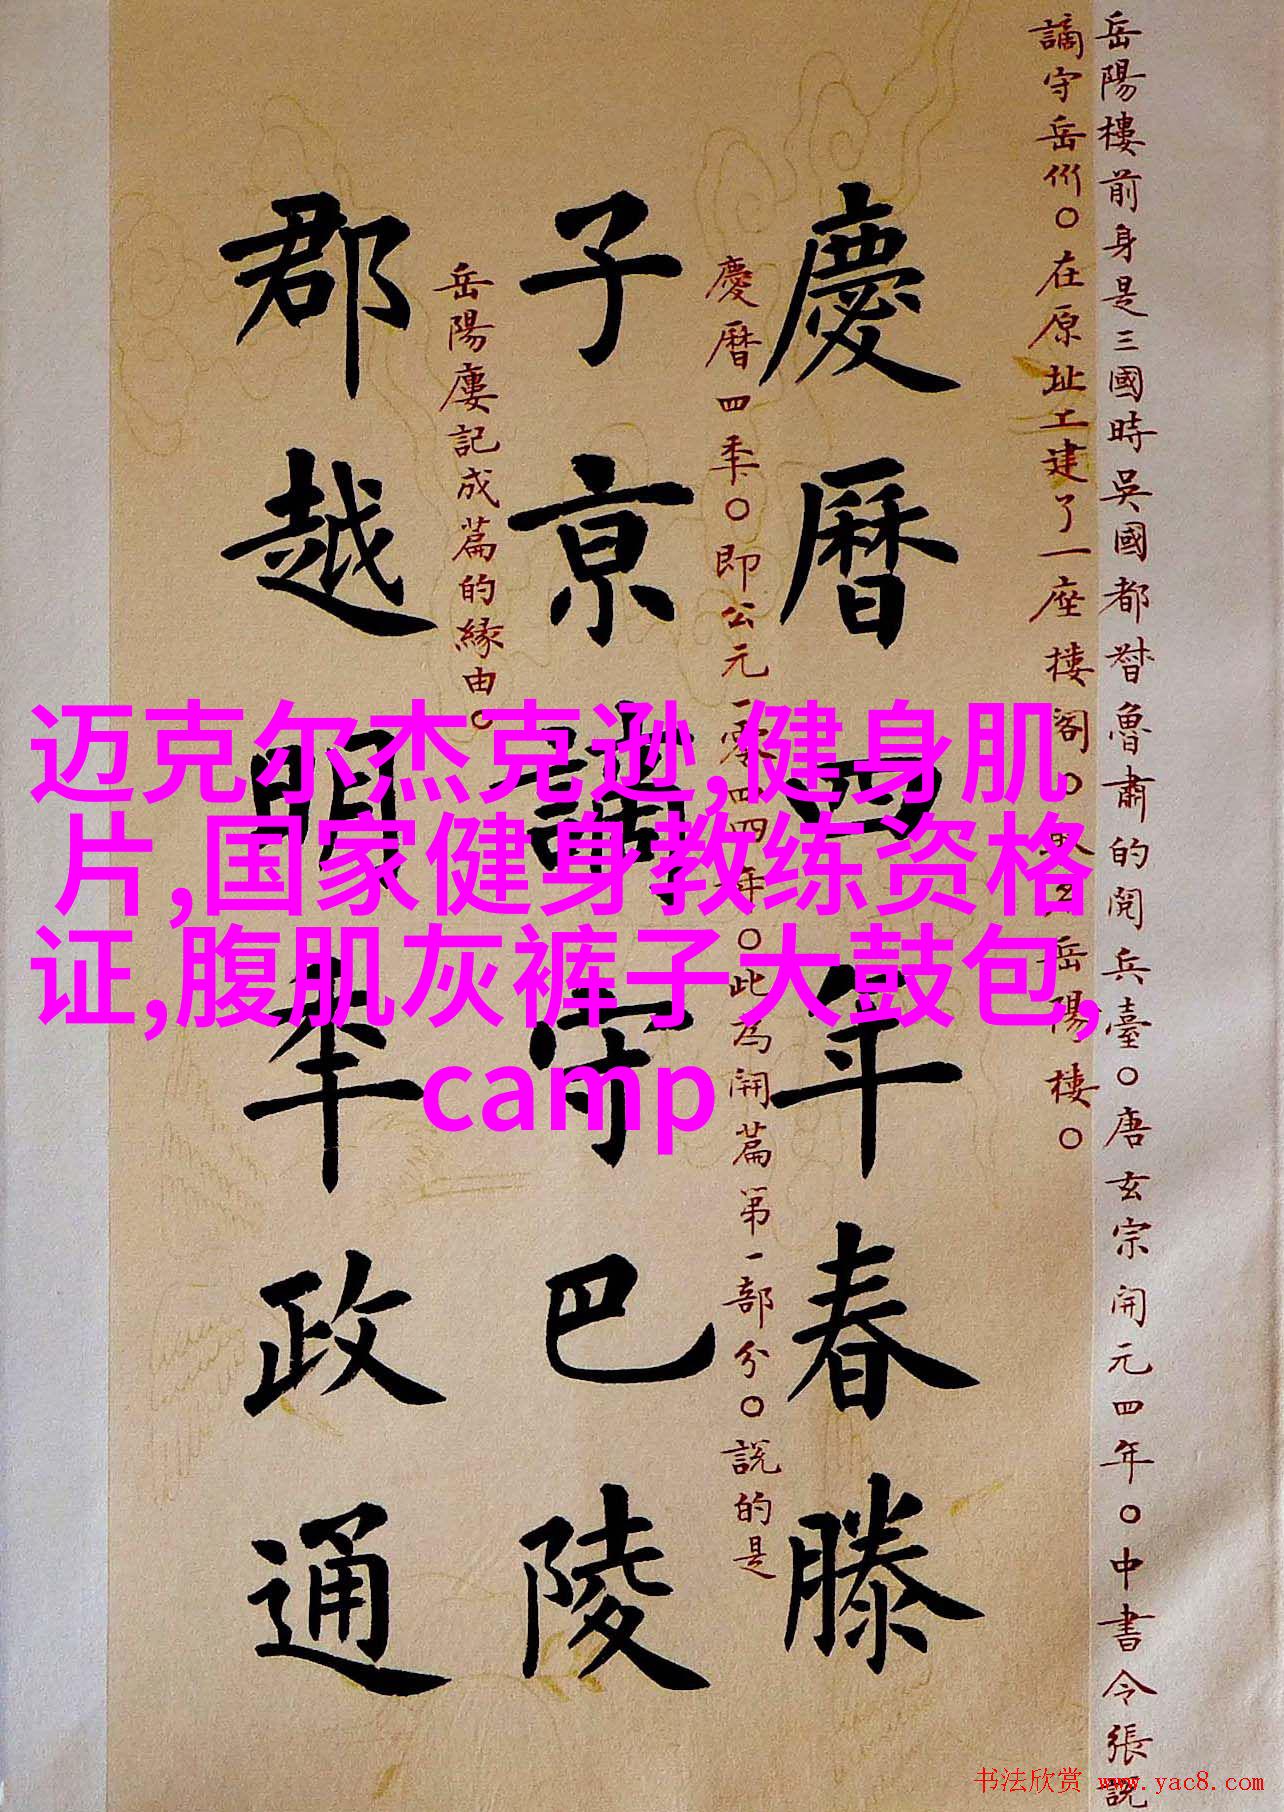 岳陽樓前身是三國時吳國都督魯肅的閱兵臺○唐玄宗開元四年○中書令張説
謫守岳州○在原址上建了一座樓閣○取名岳陽樓○
慶曆四年春滕
慶曆四年○即公元一零四四年○此為開篇第一部分○説的是
子京謫守巴陵
岳陽廔記成篇的緣由○
郡越明年政通
迈克尔杰克逊,健身肌
片,国家健身教练资格
证,腹肌灰裤子大鼓包,
camp
书法欣赏 www.yac8.com